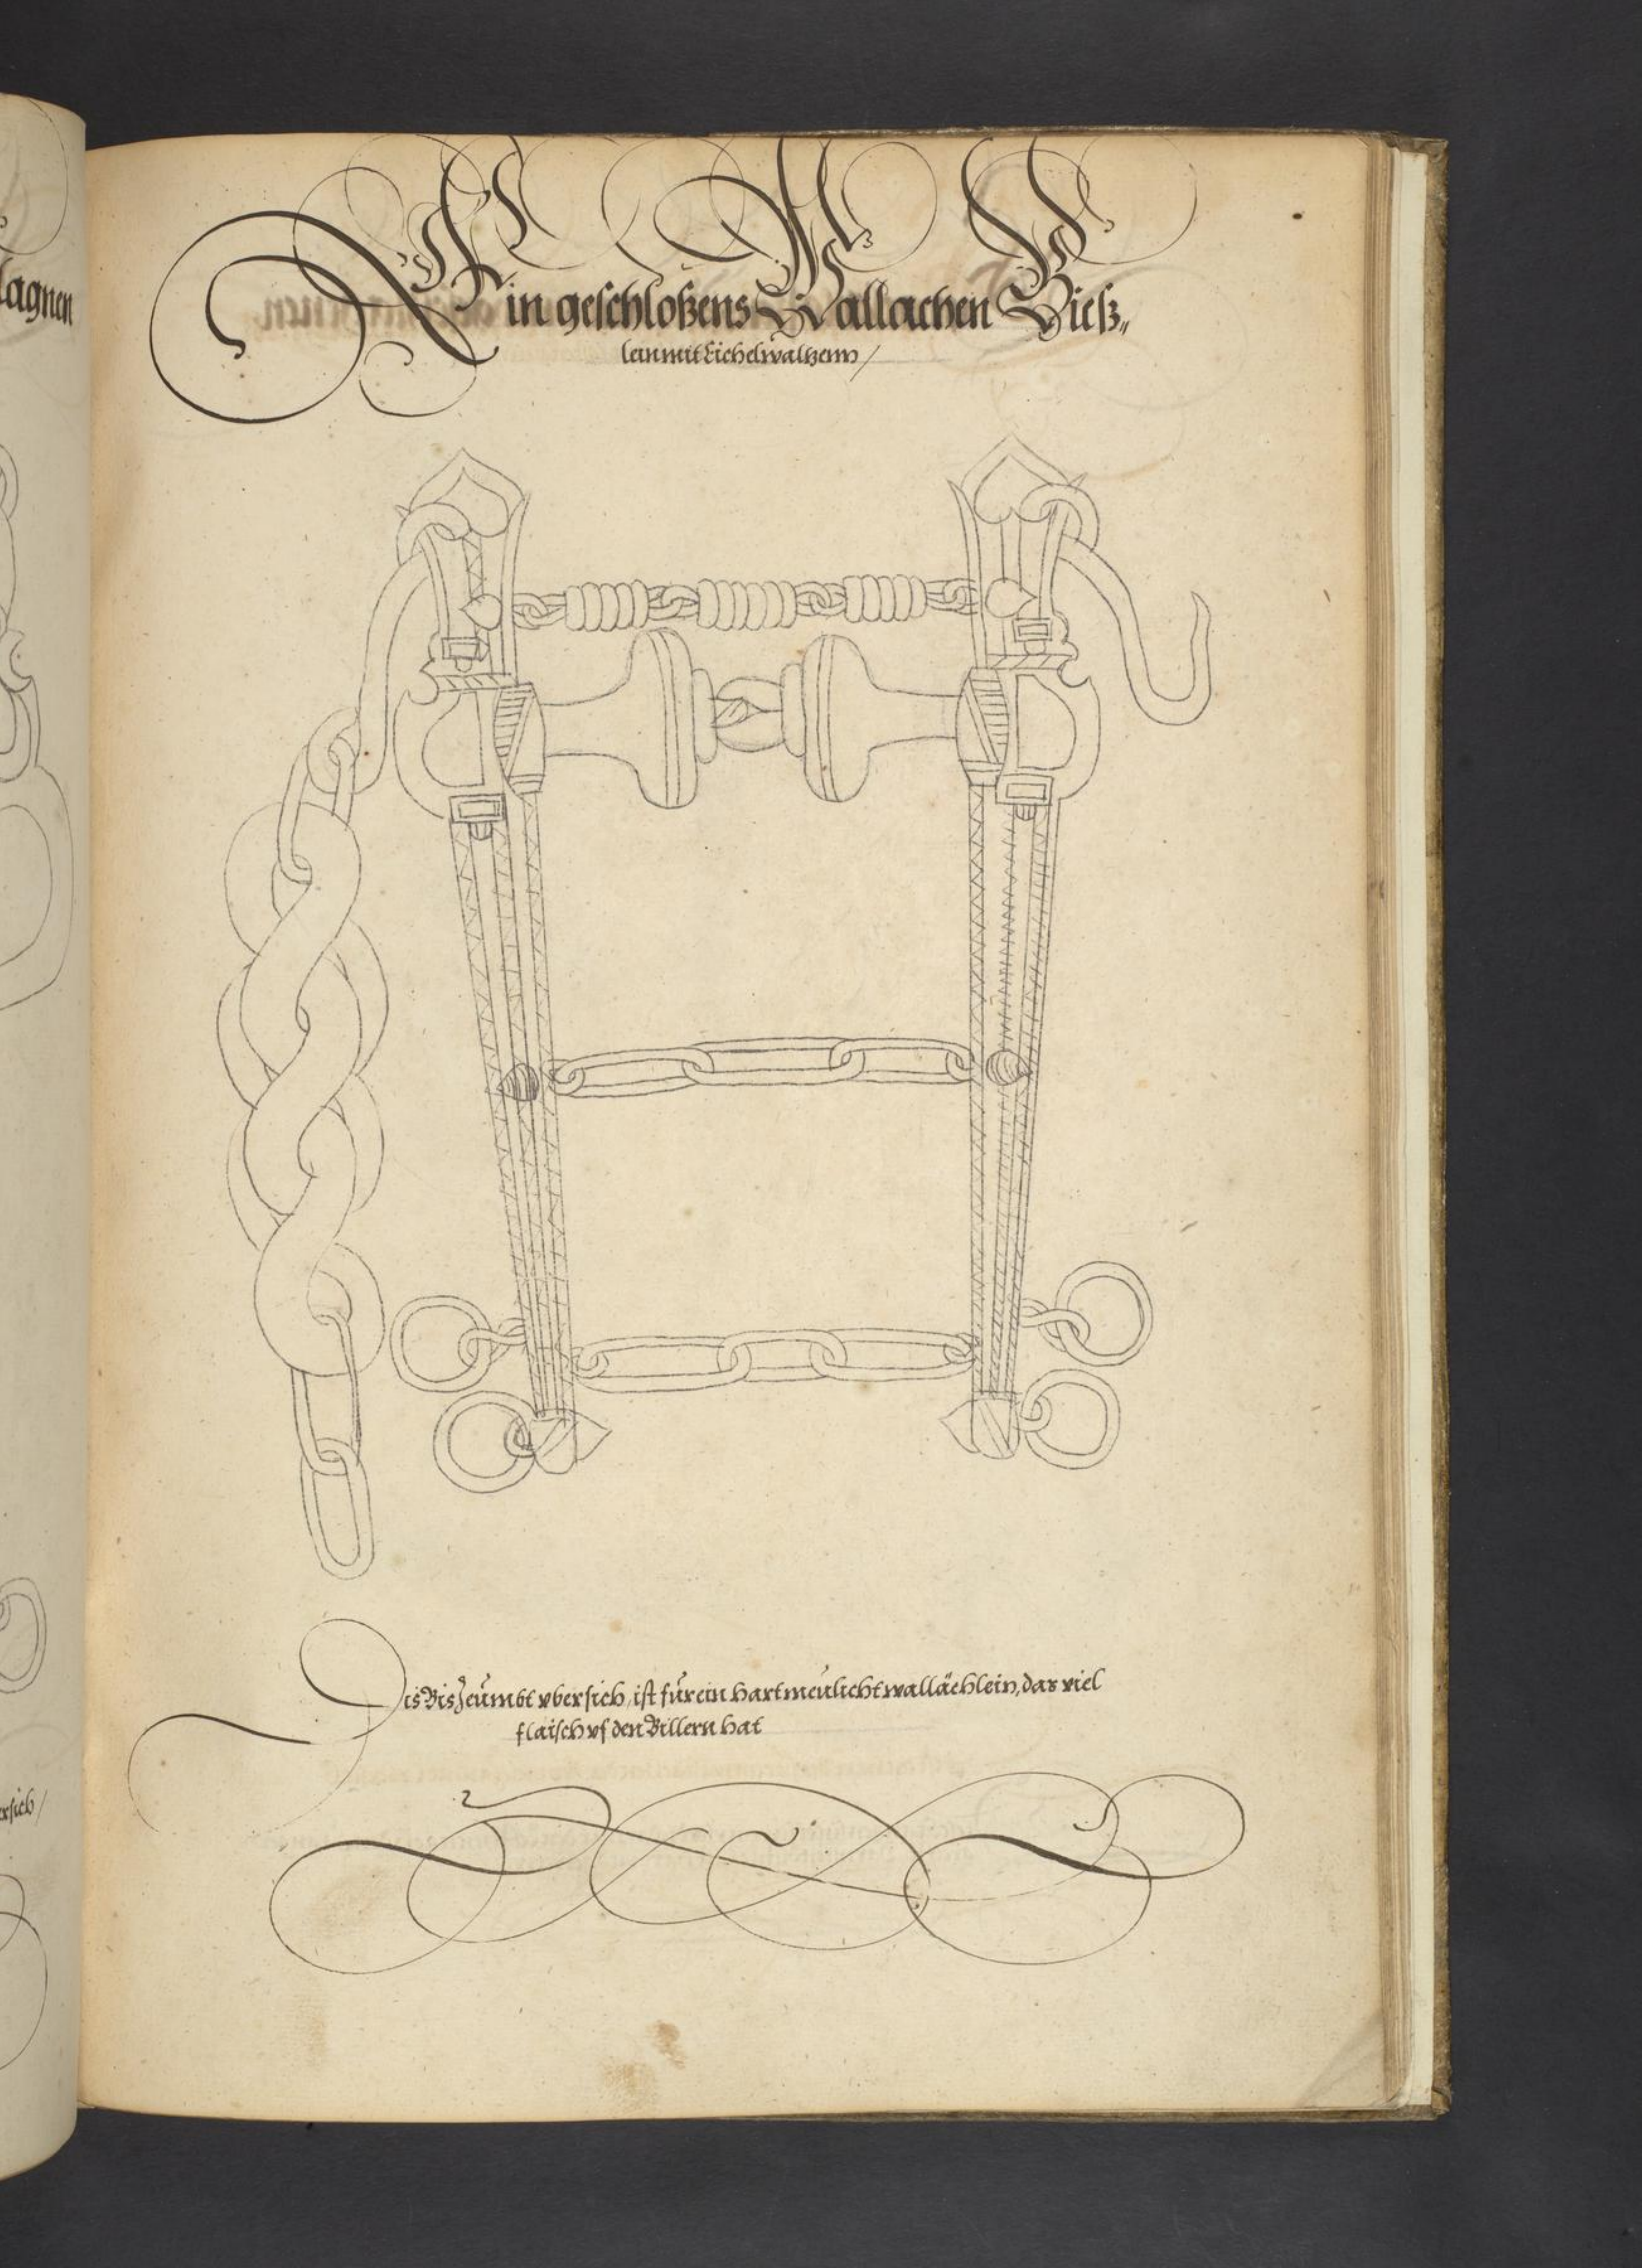 Ein geschloßens Wallachen Bieß„
lein mit Eichelwaltzenn /
Dis Bis Zeümbt vbersich, ist für ein hartmeülicht wallächlein, das viel
flaisch vf den Billern hat
lagnen
ersich /